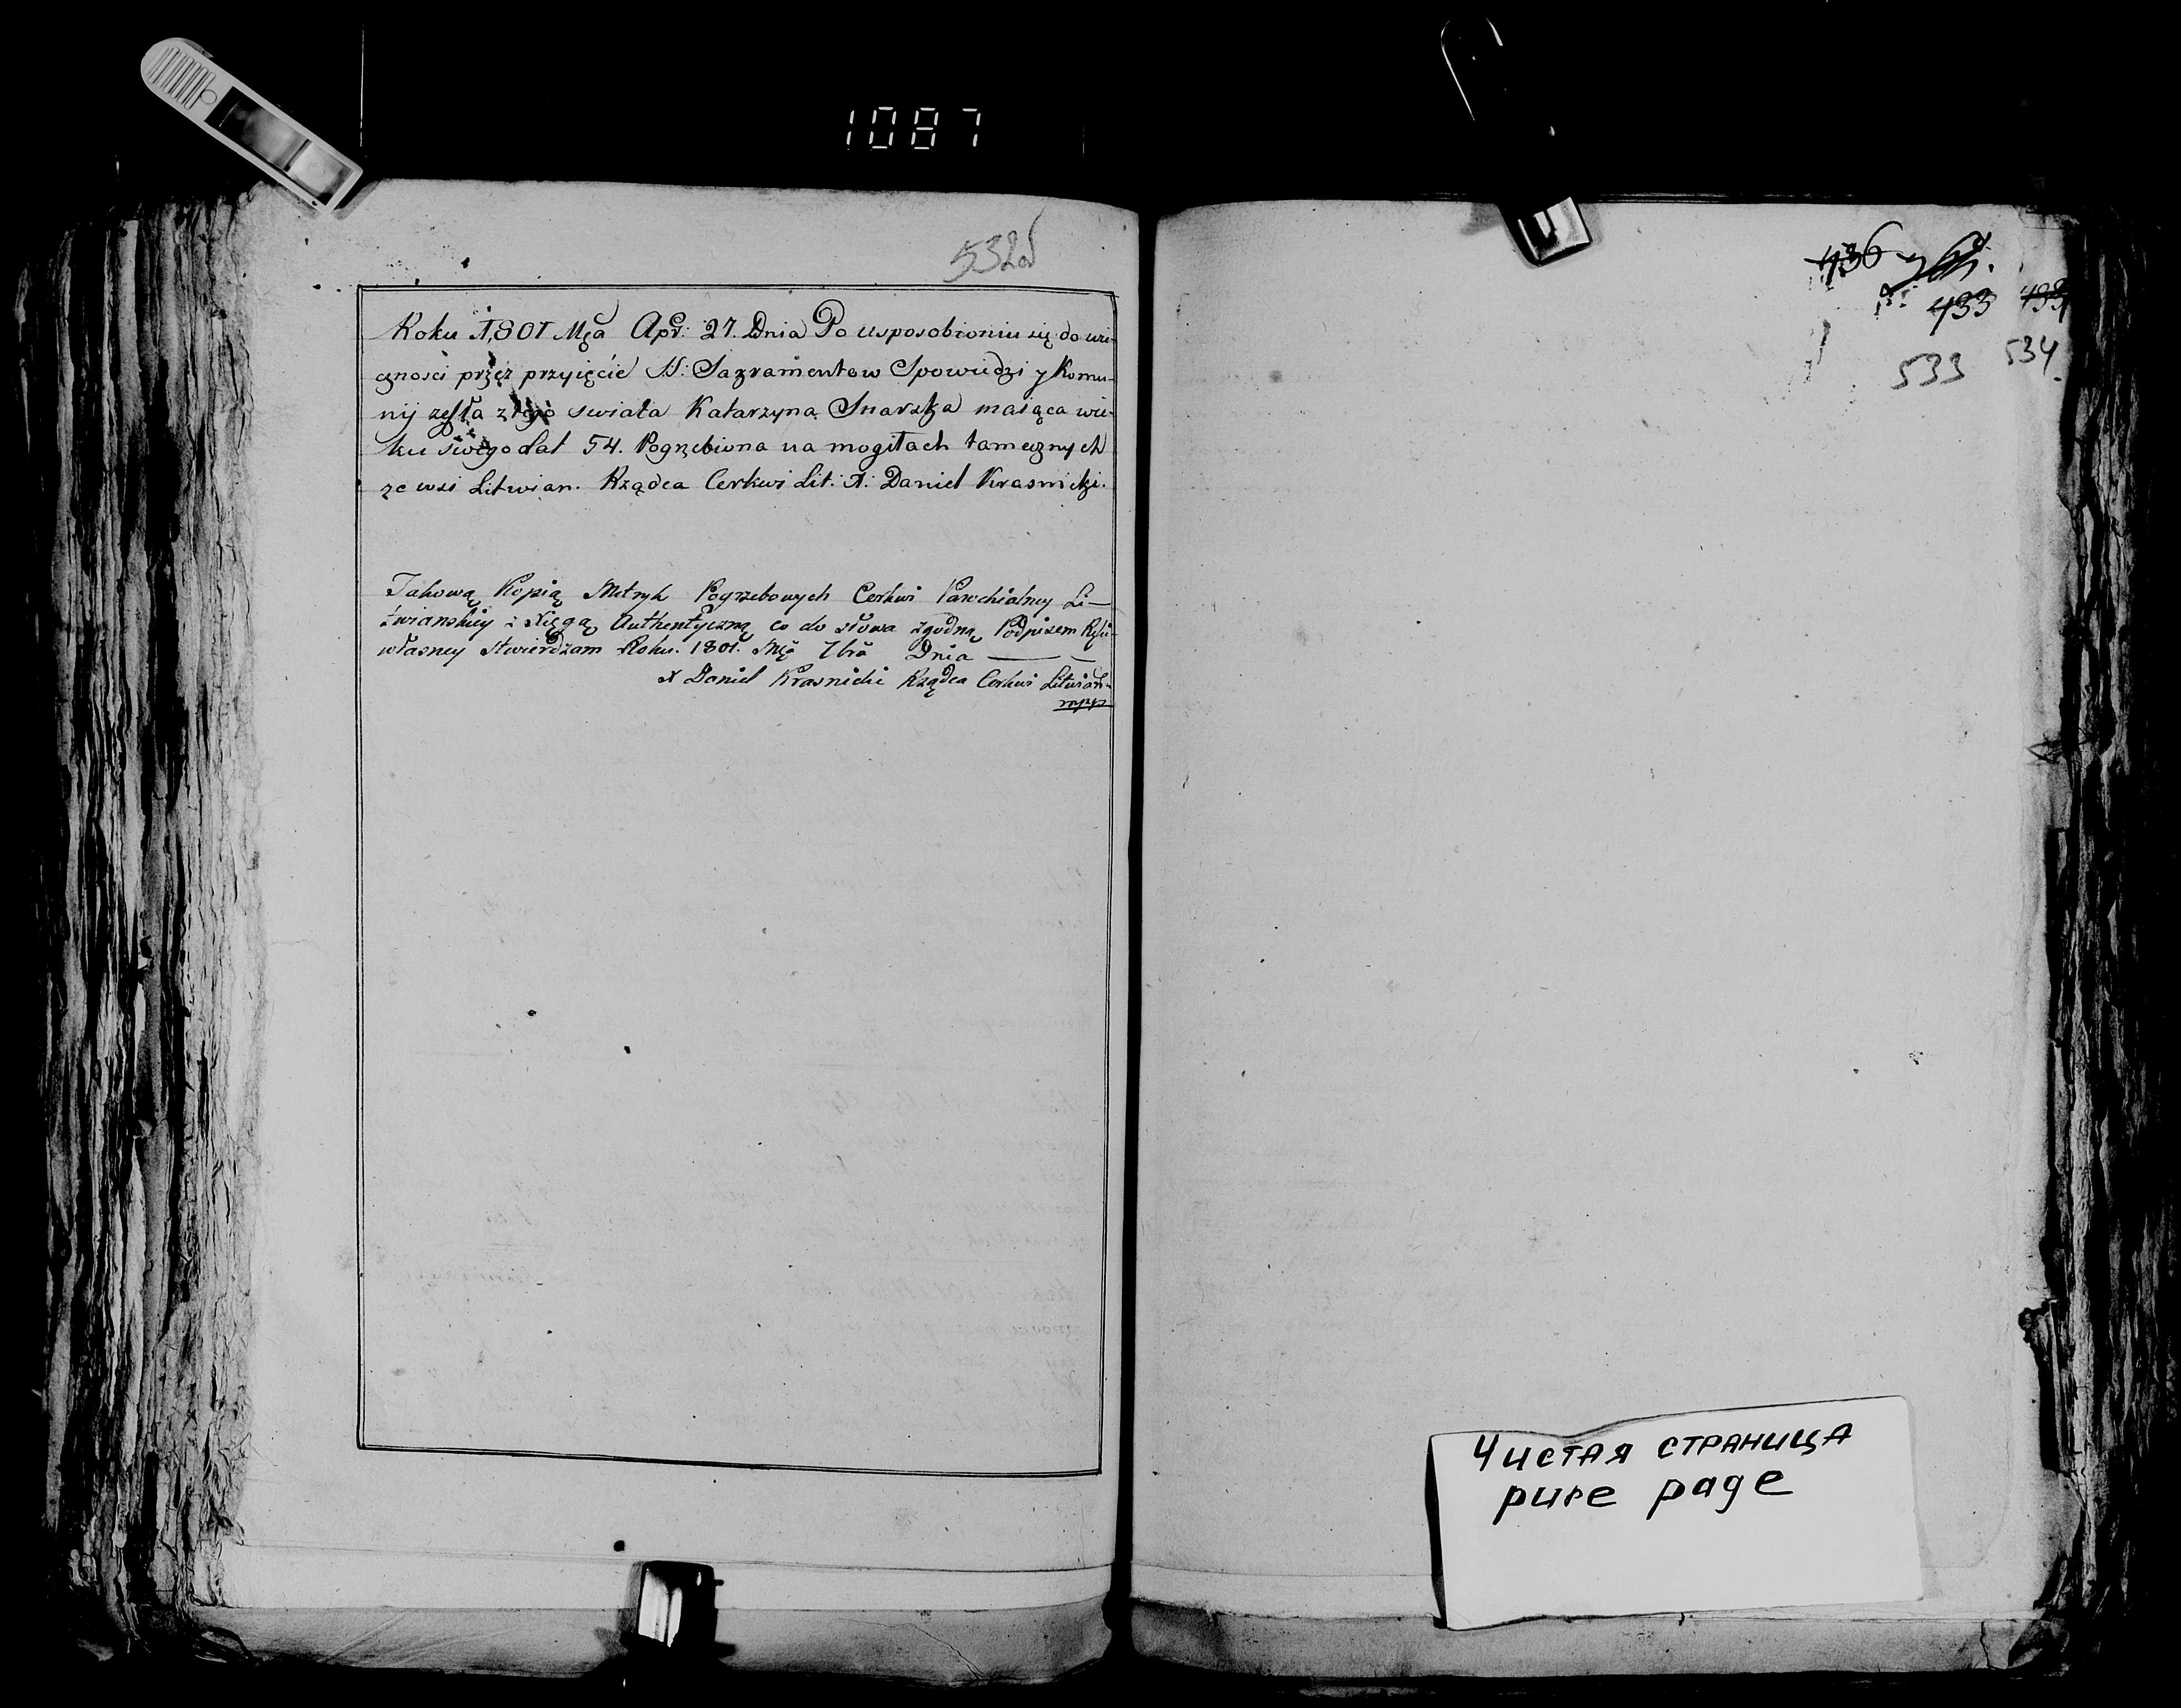 1087
532об
Roku 1801 Mca Apr: 27. Dnia Po usposobieniu się do wie-
cznosci przez przyięcie SS: Sakramentow Spowiedzi y Komu-
nij zeszła z tego swiata Katarzyna Snarska maiąca wie-
ku swego lat 54. Pogrzebiona na mogiłach tamecznych
ze wsi Litwian. Rządca Cerkwi Lit: X: Daniel Krasnicki.
Takową Kopią Metryk Pogrzebowych Cerkwi Parochialney Li-
twianskiey z Xięgą Authentyczną co do słowa zgodną Podpisem Ręki
własney stwierdzam Roku. 1801. Mca 7bra Dnia
X Daniel Krasnicki Rządca Cerkwi Litwian-
mppr
436
433 433
533 534
Чистая страница
pure page